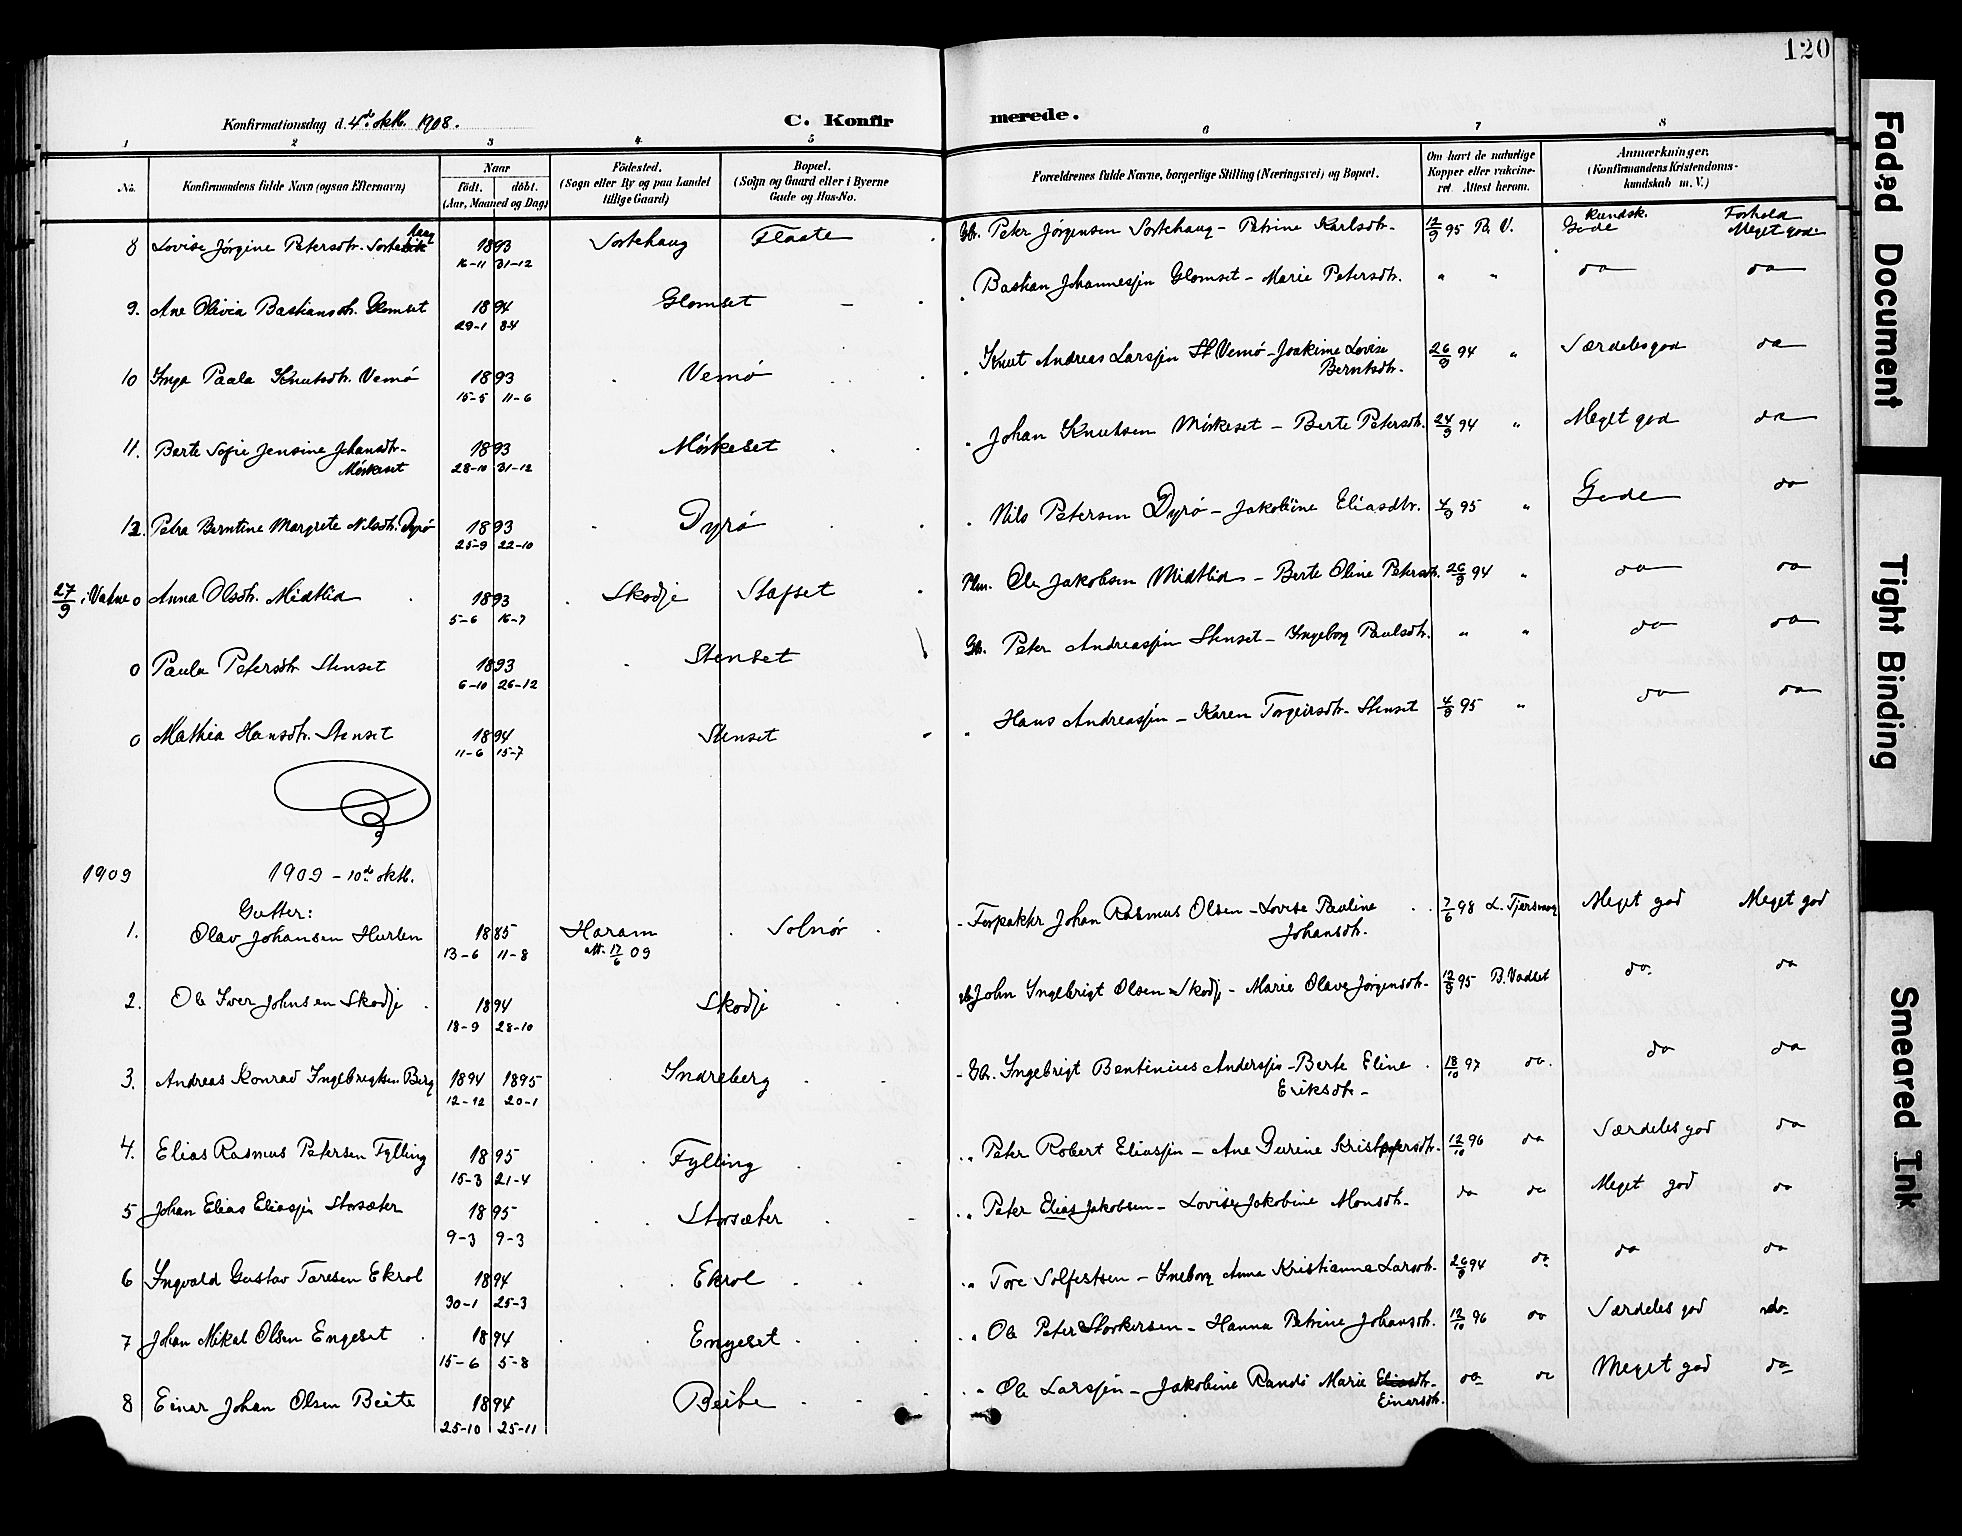 120
Konfirmationsdag d. 4de oktb. 1908.
C. Konfirmerede.
1 2 3 4 5 6 7 8
No. Konfirmandens fulde Navn (ogsaa Efternavn) Naar födt. döbt. (Aar, Maaned og Dag) Födested. (Sogn eller By og paa Landet tillige Gaard) Bopæl. (Sogn og Gaard eller i Byerne Gade og Hus-No. Forældrenes fulde Navne, borgerlige Stilling (Næringsvei) og Bopæl. Om havt de naturlige Kopper eller vakcineret. Attest herom. Anmærkninger. (Konfirmandens Kristendomskundskab m. V.)
Kundsk. Forhold
8 Lovise Jørgine Petersdtr. Sortehaug 1893 16-11 31-12 Sortehaug Flaate Gbr. Peter Jørgensen Sortehaug - Petrine Karlsdtr. 12/9 95 B. V. Gode Meget god
9. Ane Olivia Bastiansdtr. Glomset 1894 29-1 8-4 Glomset " Bastian Johannessen Glomset - Marie Petersdtr. " " do do
10 Inga Paula Knutsdtr. Vemø 1893 15-5 11-6 Vemø " Knut Andreas Larssen St Vemø - Joakime Lovise Berntsdtr. 26/9 94 " Særdeles god do
11. Berte Sofie Jensine Johansdtr. Mørkeset 1893 28-10 31-12 Mørkeset " Johan Knutsen Mørkeset - Berte Petersdtr. 24/9 94 " Meget god do
12. Petra Berntine Margrete Nilsdtr. Dyrø 1893 25-9 22-10 Dyrø " Nils Petersen Dyrø - Jakobine Eliasdtr. 4/9 95 " Gode do
27/9 i Vatne 0 Anna Olsdtr. Midtlid 1893 5-6 16-7 Skodje Stafset Plm. Ole Jakobsen Midtlid - Berte Oline Petersdtr. 26/9 94 " do do
0 Paula Petersdtr Stenset 1893 6-10 26-12 Stenset Gb. Peter Andreassen Stenset - Ingeborg Paulsdtr. " " do do
0 Mathea Hansdtr. Stenset 1894 11-6 15-7 Stenset " Hans Andreassen - Karen Torgeirsdtr. Stenset 4/9 95 " do do
1909 1909 - 10de oktb.
Gutter:
1. Olav Johansen Hurlen 1885 13-6 11-8 Haram att. 17/6 09 Solnør Forpakter Johan Rasmus Olsen - Lovise Pauline Johansdtr. 7/6 98 Meget god Meget god
2. Ole Iver Johnsen Skodje 1894 18-9 28-10 Skodje John Ingebrigt Olsen Skodje - Marie Olave Jørgensdtr. 12/9 95 B. Vadset do. do
3. Andreas Konrad Ingebrigtsen Berg 1894 12-12 1895 20-1 Indreberg Gbr. Ingebrigt Bentinius Anderssen - Berte Eline Eriksdtr. 18/10 97 do. do do
4. Elias Rasmus Petersen Fylling 1895 15-3 21-4 Fylling " Peter Robert Eliassen - Ane Gurine Kristofersdtr. 12/10 96 do Særdeles god do
5 Johan Elias Eliassen Storsæter 1895 9-3 9-3 Storsæter " Peter Elias Jakobsen - Lovise Jakobine Monsdtr. do do Meget god do
6 Ingvald Gustav Toresen Ekrol 1894 30-1 25-3 Ekrol " Tore Solfestsen - Ineborg Anna Kristianna Larsdtr. 26/9 94 do. do do
7 Johan Mikal Olsen Engeset 1894 15-6 5-8 Engeset " Ole Peter Storkersen - Hanna Petrine Johansdtr. 12/10 96 do Særdeles god do.
8 Einar Johan Olsen Beite 1894 25-10 25-11 Beite " Ole Larssen - Jakobine Randi Marie Eliasdtr. Einarsdtr. do do Meget god do
Faded Document
Tight Binding
Smeared Ink